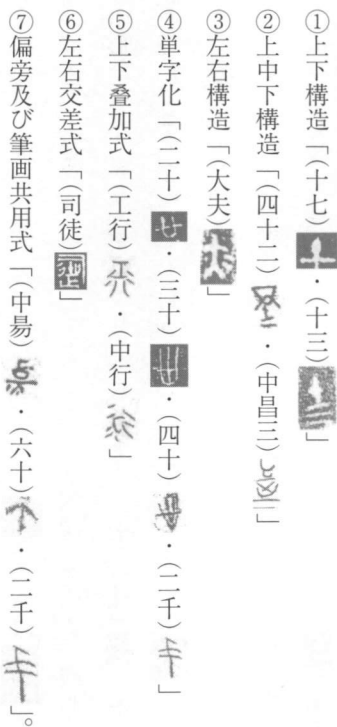 ①上下構造「(十七)・(十三)」
②上中下構造「(四十二)・(中昌三)」
③左右構造「(大夫)」
④単字化「(二十)・(三十)・(四十)・(二千)」
⑤上下叠加式「(工行)・(中行)」
⑥左右交差式「(司徒)」
⑦偏旁及び筆画共用式「(中昜)・(六十)・(二千)」。